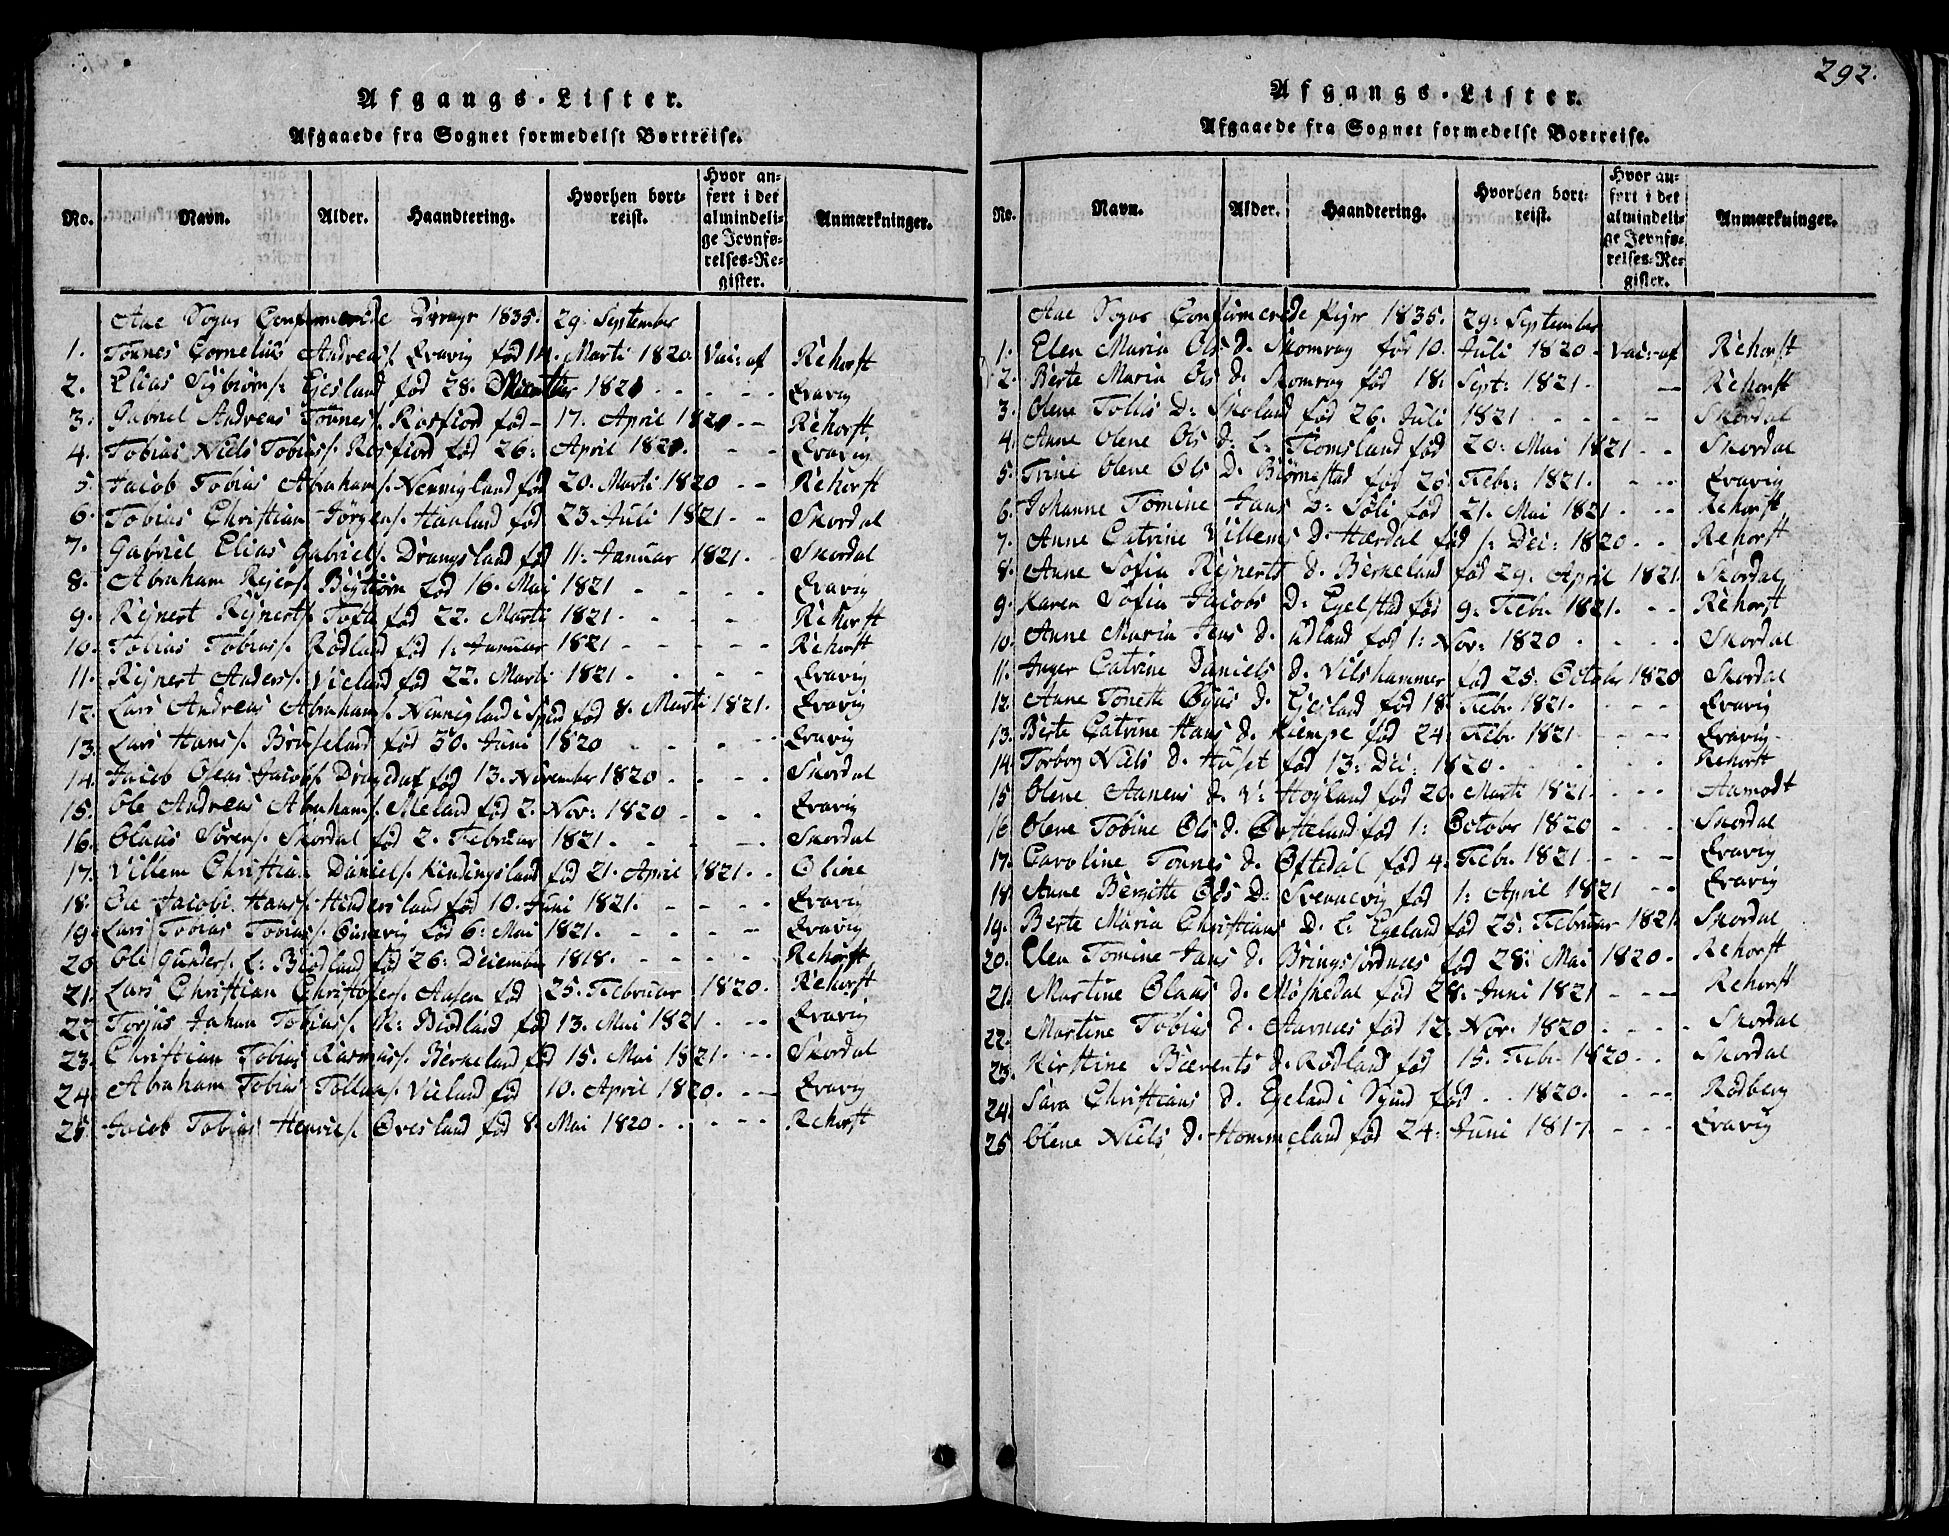 Afgangs-Lister.
Afgaaede fra Sognet formedelst Bortreise.
No. Navn. Alder. Haandtering. Hvorhen bortreist. Hvor anført i det almindelige Jevnførelses-Register. Anmærkninger.
Aae Sogns Confirmerede Drenge 1835. 29. September
1. Tönnes Cornelius Andreas/. Qvavig fød 14. Marti 1820. Vac: af Rehorst
2. Elias Sijbiörn/. Ejesland fød 28. 1820 - - - - - Qvavig
3. Gabriel Andreas Tönnes/. Rosfiord fød - 17. April 1820 - - Rehorst
4. Tobias Niels Tobias/. Rosfiord fød 26. April 1820. - - Qvavig
5. Jacob Tobias Abraham/. Nennigland fød 20. Marti 1820 - - Rehorst
6. Tobias Christian Jörgen/. Haaland fød 23. Juli 1821. - - Skordal
7. Gabriel Elias Gabriel/. Drangsland fød 11. Januar 1821. - Skordal
8. Abraham Rejer/. fød 16. Mai 1821 - - - - Qvavig
9. Rejnert Rejnert/. Tofte fød 22. Marti 1821. - - - - Rehorst
10. Tobias Tobias/. Rödland fød 1. Januar 1821 - - - - - Rehorst
11. Rejnert Anders/. Vieland fød 22. Marti 1821 - - - - Qvavig
12. Lars Andreas Abraham/. Nennigland i Spind fød 8. Marti 1821. Qvavig
13. Lars Hans/. Bruseland fød 30. Juni 1820 - - - - - Qvavig
14. Jacob Oseas Jacob/. fød 13. November 1820 - - - - Skordal
15. Ole Andreas Abraham/. Meland fød 2. Nov: 1820 - - - Qvavig
16. Olaus Sören/. Skordal fød 2. Februar 1821. - - - - Skordal
17. Villem Christian Daniel/. Kindingsland fød 21. April 1821. - Oline
18. Ole Jacobi Hans/. Hindersland fød 10. Juni 1821. - - - - Qvavig
19. Lars Tobias Tobias/. fød 6. Mai 1821. - - - - Qvavig
20. Ole Gunder/. L: Biödland fød 26. December 1818. - - - - Rehorst
21. Lars Christian Christofer/. Aasen fød 25. Februar 1820. Rehorst
22. Torjus Johan Tobias/. N: Biödland fød 13. Mai 1821 - - Qvavig
23. Christian Tobias Rasmus/. Berneland fød 15. Mai 1821. - - Skordal
24. Abraham Tobias Tollev/. Vieland fød 10. April 1820. - - Qvavig
25. Jacob Tobias Henric/. Øvesland fød 8. Mai 1820 - - - - Rehorst
292.
Afgangs-Lister.
Afgaaede fra Sognet formedelst Bortreise.
No. Navn. Alder. Haandtering. Hvorhen bortreist. Hvor anført i det almindelige Jevnførelses-Register. Anmærkninger.
Aae Sogns Confirmerede Piger 1835. 29. September
1. Elen Maria Ols D. Skomrag fød 10. Juli 1820 - Vac: af Rehorst
2. Berte Maria Ols D. Skomrag fød 18. Sept: 1821. - Rehorst
3. Olene Tollis D. Skoland fød 26. Juli 1821 - - - - - Skordal
4. Anne Olene Ols D. L: Tomsland fød 20. Mai 1821 - - Skordal
5. Trine Olene Ols D. Biörnestad fød 26. Feb: 1821. - - - Qvavig
6. Johanne Tomine Jans D. Söli fød 21. Mai 1821. - - Rehorst
7. Anne Catrine Villems D. Hærdal fød /. Dec: 1820 - - Rehorst
8. Anne Sofia Rejnerts D. Berneland fød 29. April 1821. Skordal
9. Karen Sofia Jacobs D. Egelstad fød 9. Feb: 1821. - - Rehorst
10. Anne Maria Jens D. Udland fød 1. Nov: 1820 - - - Skordal
11. Inger Catrine Daniels D. Vilshammer fød 25. October 1820 Skordal
12. Anne Tonette Osuls D. Ejesland fød 18. Feb: 1821. - - - Qvavig
13. Berte Catrine Hans D. Kiempe fød 24. Feb: 1821 - - - Qvavig
14. Torborg Niels D. Huset fød 13. Dec: 1820. - - - - Rehorst
15. Olene Aanens D. V: Höyland fød 20. Marti 1821. - - - Aamodt
16. Olene Tobine Ols D. Øvsteland fød 1. October 1820 - - Skordal
17. Caroline Tönnes D. Oftedal fød 4. Feb: 1821. - - - Qvavig
18. Anne Bergitte Ols D. Svennevig fød 1. April 1821 - - Qvavig
19. Berte Maria Christians D. L: Egeland fød 25. Februar 1821. Skordal
20. Elen Tomine Jans D. Bringsiordnes fød 28. Mai 1820. Rehorst
21. Martine Olaus D. Möskedal fød 28. Juni 1821 - - - Rehorst
22. Martine Tobias D. Aarnes fød 12. Nov. 1820 - - - - Skordal
23. Kirstine Bærents D. Rödland fød 15. Feb: 1820 - - Skordal
24. Sara Christians D. Egeland i Spind fød - - 1820. - - - Rödberg
25. Olene Niels D. Hommeland fød 24. Juni 1817. - - - Qvavig